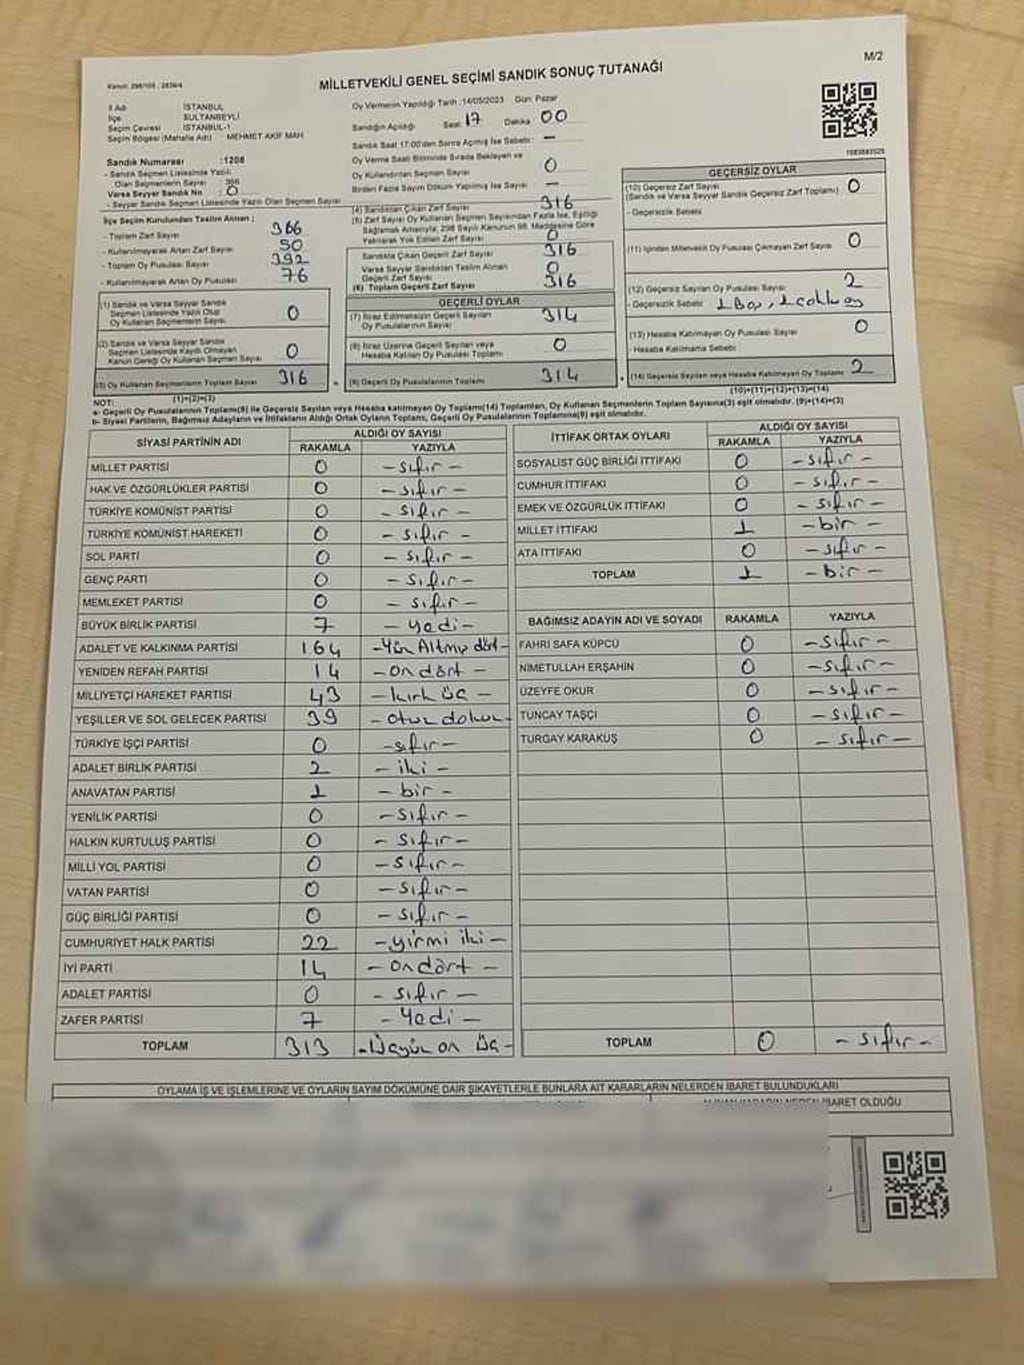 M/2
Kanun: 298/105 : 2839/4
MİLLETVEKİLİ GENEL SEÇİMİ SANDIK SONUÇ TUTANAĞI
İl Adı : İSTANBUL
İlçe : SULTANBEYLİ
Seçim Çevresi : İSTANBUL-1
Seçim Bölgesi (Mahalle Adı) : MEHMET AKİF MAH
Sandık Numarası :1208
- Sandık Seçmen Listesinde Yazılı
Olan Seçmenlerin Sayısı : 366
Varsa Seyyar Sandık No : 0
- Seyyar Sandık Seçmen Listesinde Yazılı Olan Seçmen Sayısı
Oy Vermenin Yapıldığı Tarih :14/05/2023 Gün: Pazar
Sandığın Açıldığı Saat: 17 Dakika 00
Sandık Saat 17:00'den Sonra Açılmış İse Sebebi: —
Oy Verme Saati Bitiminde Sırada Bekleyen ve
Oy Kullandırılan Seçmen Sayısı : 0
Birden Fazla Sayım Döküm Yapılmış İse Sayısı : —
İlçe Seçim Kurulundan Teslim Alınan ;
- Toplam Zarf Sayısı 366
- Kullanılmayarak Artan Zarf Sayısı 50
- Toplam Oy Pusulası Sayısı 392
- Kullanılmayarak Artan Oy Pusulası 76
(1) Sandık ve Varsa Seyyar Sandık
Seçmen Listesinde Yazılı Olup
Oy Kullanan Seçmenlerin Sayısı 0
(2) Sandık ve Varsa Seyyar Sandık
Seçmen Listesinde Kayıtlı Olmayan
Kanun Gereği Oy Kullanan Seçmen Sayısı 0
(3) Oy Kullanan Seçmenlerin Toplam Sayısı 316
(1)+(2)=(3)
(4) Sandıktan Çıkan Zarf Sayısı 316
(5) Zarf Sayısı Oy Kullanan Seçmen Sayısından Fazla İse, Eşitliği
Sağlamak Amacıyla; 298 Sayılı Kanunun 98. Maddesine Göre
Yakılarak Yok Edilen Zarf Sayısı 0
Sandıkta Çıkan Geçerli Zarf Sayısı 316
Varsa Seyyar Sandıktan Teslim Alınan
Geçerli Zarf Sayısı 0
(6) Toplam Geçerli Zarf Sayısı 316
GEÇERLİ OYLAR
(7) İtiraz Edilmeksizin Geçerli Sayılan
Oy Pusulalarının Sayısı 314
(8) İtiraz Üzerine Geçerli Sayılan veya
Hesaba Katılan Oy Pusulası Toplamı 0
(9) Geçerli Oy Pusulalarının Toplamı 314
1083883525
GEÇERSİZ OYLAR
(10) Geçersiz Zarf Sayısı
(Sandık ve Varsa Seyyar Sandık Geçersiz Zarf Toplamı) 0
- Geçersizlik Sebebi
(11) İçinden Milletvekili Oy Pusulası Çıkmayan Zarf Sayısı 0
(12) Geçersiz Sayılan Oy Pusulası Sayısı 2
- Geçersizlik Sebebi
(13) Hesaba Katılmayan Oy Pusulası Sayısı 0
- Hesaba Katılmama Sebebi
(14) Geçersiz Sayılan veya Hesaba Katılmayan Oy Toplamı 2
(10)+(11)+(12)+(13)=(14)
NOT:
a- Geçerli Oy Pusulalarının Toplamı(9) ile Geçersiz Sayılan veya Hesaba katılmayan Oy Toplamı(14) Toplamları, Oy Kullanan Seçmenlerin Toplam Sayısına(3) eşit olmalıdır. (9)+(14)=(3)
b- Siyasi Partilerin, Bağımsız Adayların ve İttifakların Aldığı Ortak Oyların Toplamı, Geçerli Oy Pusulalarının Toplamına(9) eşit olmalıdır.
SİYASİ PARTİNİN ADI ALDIĞI OY SAYISI
RAKAMLA YAZIYLA
MİLLET PARTİSİ 0 - sıfır -
HAK VE ÖZGÜRLÜKLER PARTİSİ 0 - sıfır -
TÜRKİYE KOMÜNİST PARTİSİ 0 - sıfır -
TÜRKİYE KOMÜNİST HAREKETİ 0 - sıfır -
SOL PARTİ 0 - sıfır -
GENÇ PARTİ 0 - sıfır -
MEMLEKET PARTİSİ 0 - sıfır -
BÜYÜK BİRLİK PARTİSİ 7 - yedi -
ADALET VE KALKINMA PARTİSİ 164 - Yüz Altmış dört -
YENİDEN REFAH PARTİSİ 14 - on dört -
MİLLİYETÇİ HAREKET PARTİSİ 43 - kırk üç -
YEŞİLLER VE SOL GELECEK PARTİSİ 39 - otuz dokuz -
TÜRKİYE İŞÇİ PARTİSİ 0 - sıfır -
ADALET BİRLİK PARTİSİ 2 - iki -
ANAVATAN PARTİSİ 1 - bir -
YENİLİK PARTİSİ 0 - sıfır -
HALKIN KURTULUŞ PARTİSİ 0 - sıfır -
MİLLİ YOL PARTİSİ 0 - sıfır -
VATAN PARTİSİ 0 - sıfır -
GÜÇ BİRLİĞİ PARTİSİ 0 - sıfır -
CUMHURİYET HALK PARTİSİ 22 - yirmi iki -
İYİ PARTİ 14 - on dört -
ADALET PARTİSİ 0 - sıfır -
ZAFER PARTİSİ 7 - Yedi -
TOPLAM 313 - Üçyüz on üç -
İTTİFAK ORTAK OYLARI ALDIĞI OY SAYISI
RAKAMLA YAZIYLA
SOSYALİST GÜÇ BİRLİĞİ İTTİFAKI 0 - sıfır -
CUMHUR İTTİFAKI 0 - sıfır -
EMEK VE ÖZGÜRLÜK İTTİFAKI 0 - sıfır -
MİLLET İTTİFAKI 1 - bir -
ATA İTTİFAKI 0 - sıfır -
TOPLAM 1 - bir -
BAĞIMSIZ ADAYIN ADI VE SOYADI RAKAMLA YAZIYLA
FAHRİ SAFA KÜPCÜ 0 - sıfır -
NİMETULLAH ERŞAHİN 0 - sıfır -
ÜZEYFE OKUR 0 - sıfır -
TUNCAY TAŞÇI 0 - sıfır -
TURGAY KARAKUŞ 0 - sıfır -
TOPLAM 0 - sıfır -
OYLAMA İŞ VE İŞLEMLERİNE VE OYLARIN SAYIM DÖKÜMÜNE DAİR ŞİKAYETLERLE BUNLARA AİT KARARLARIN NELERDEN İBARET BULUNDUKLARI
İBARET OLDUĞU